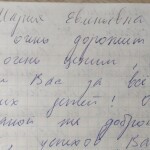 Мария Евгеньевна
очень дорожит
очень ценит
Вас за все
ших детей!
же добро
успехов Ва